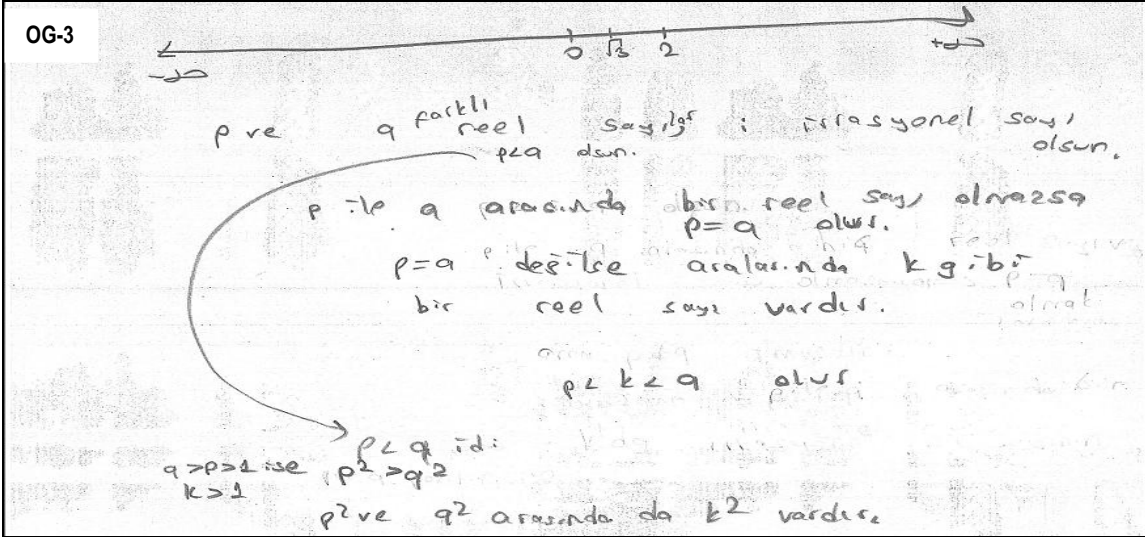 OG-3
0 √3 2
-∞ +∞
p ve q farklı reel sayılar ; irrasyonel sayı olsun.
p<q olsun.
p ile q arasında bir reel sayı olmazsa
p=q olur.
p=q değilse aralarında k gibi
bir reel sayı vardır.
p<k<q olur
p<q idi
q>p>1 ise p²>q²
k>1
p² ve q² arasında da k² vardır.